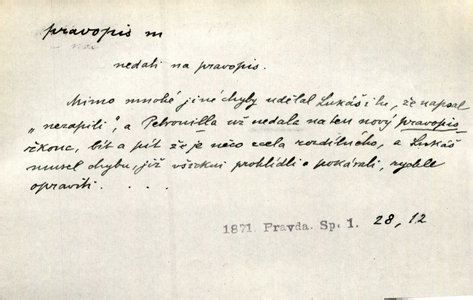 pravopis m
nedati na pravopis.
Mimo mnohé jiné chyby udělal Lukáš i tu, že napsal
„nezapili“, a Petronilla už nedala na ten nový pravopis
řkouc, bít a pít že je něco zcela rozdílného, a Lukáš
musel chybu, již všickni prohlídli a pokárali, rychle
opraviti. . . . .
1871. Pravda. Sp. 1. 28, 12